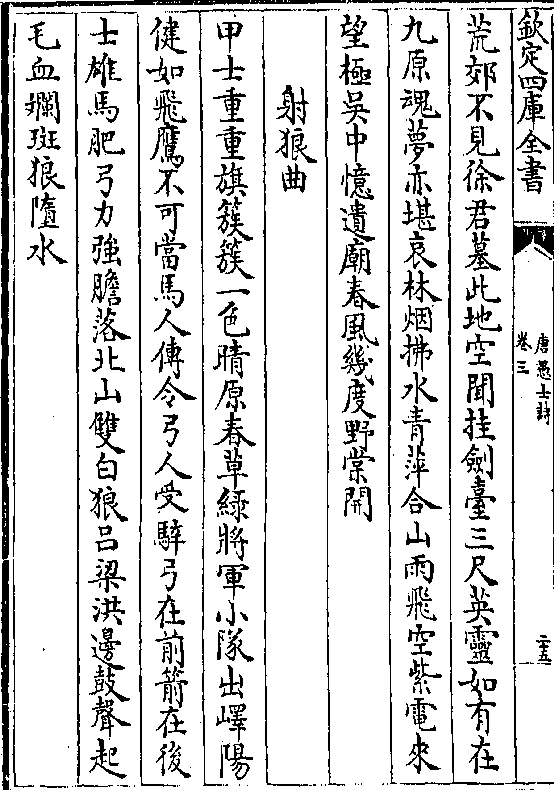 欽定四庫全書
唐愚士詩
卷三
二五
荒郊不見徐君墓此地空聞挂劍臺三尺英靈如有在
九原魂夢亦堪哀林烟拂水青萍合山雨飛空紫電來
望極吳中憶遺廟春風幾度野棠開
射狼曲
甲士重重旗簇簇一色晴原春草綠將軍小隊出嶧陽
健如飛鷹不可當馬人傳令弓人受騂弓在前箭在後
士雄馬肥弓力強膽落北山雙白狼呂梁洪邊鼓聲起
毛血斕斑狼墮水